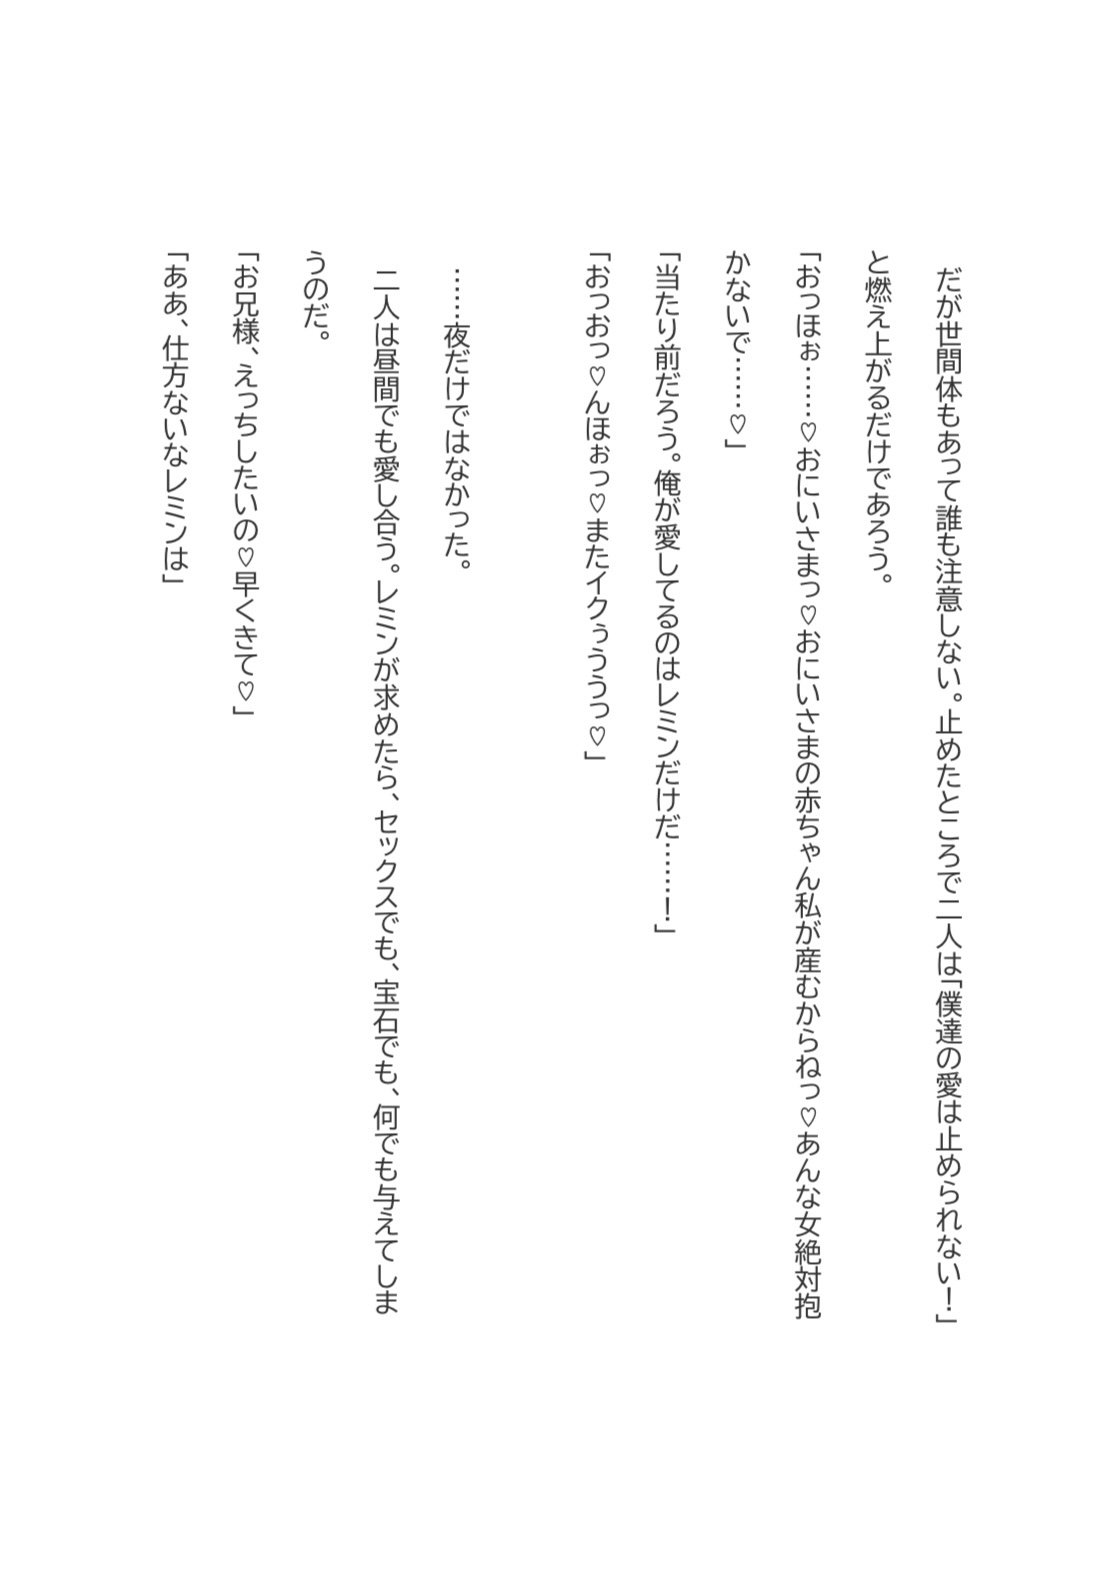 だが世間体もあって誰も注意しない。止めたところで二人は「僕達の愛は止められない！」
と燃え上がるだけであろう。
「おっほぉ……♡おにいさまっ♡おにいさまの赤ちゃん私が産むからねっ♡あんな女絶対抱
かないで……♡」
「当たり前だろう。俺が愛してるのはレミンだけだ……！」
「おっおっ♡んほぉっ♡またイクぅううっ♡」
……夜だけではなかった。
二人は昼間でも愛し合う。レミンが求めたら、セックスでも、宝石でも、何でも与えてしま
うのだ。
「お兄様、えっちしたいの♡早くきて♡」
「ああ、仕方ないなレミンは」